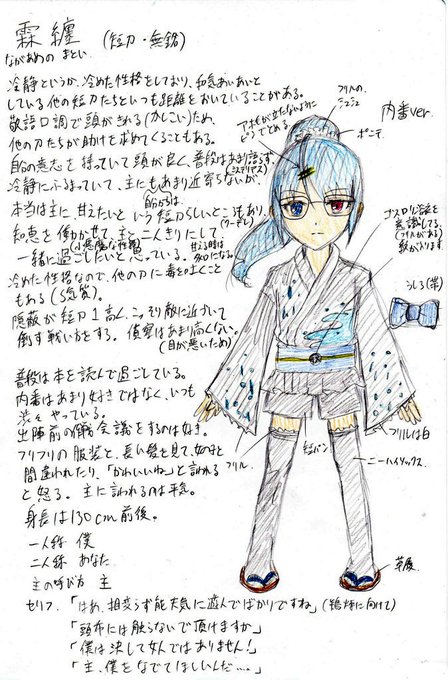 霖 纏 (短刀・無銘)
ながあめの まとい
冷静というか、冷めた性格をしており、和気あいあいと
している他の短刀たちといつも距離をおいていることがある。
敬語口調で頭がきれる(かしこい)ため、
他の刀たちが助けを求めてくることもある。
自分の意志を持っていて頭が良く、普段はあまり話さず
(ミステリアス)
冷静にふるまっていて、主にもあまり近寄らないが、
本当は主に、甘えたいという短刀らしいところもあり、
自分からは
(クーデレ)
知恵を働かせて、主と二人きりにして、
(小悪魔な性格)
一緒に過ごしたいと思っている。
甘える時は
タメ口になる
冷めた性格なので、他の刀に毒を吐くこと
もある(S気質)。
隠蔽が短刀1高く、こっそり敵に近づいて
倒す戦い方をする。偵察はあまり高くない。
(目が悪いため)
普段は本を読んで過ごしている。
内番はあまり好きではなく、いつも
渋々やっている。
出陣前の作戦会議をするのは好き。
フリフリの服装と、長い髪を見て、女の子と
間違われたり、「かわいいね」と言われる
と怒る。主に言われるのは平気。
身長は130cm前後。
一人称 僕
二人称 あなた
主の呼び方 主
セリフ.「はあ、相変らず能天気に遊んでばかりですね」(鶴様に向けて)
「頭布には触らないで頂けますか」
「僕は決して女んではありません!」
「主、僕をなでてほしいんだ…。」
内番ver.
フリルの
シュシュ
アホ毛が立たないように
ピンでとめる
ポニテ
ゴスロリ浴衣を
意識してる
(フリルがある)
紋が入ります
うしろ(帯)
フリルは白
フリル
短パン
ニーハイソックス.
草履